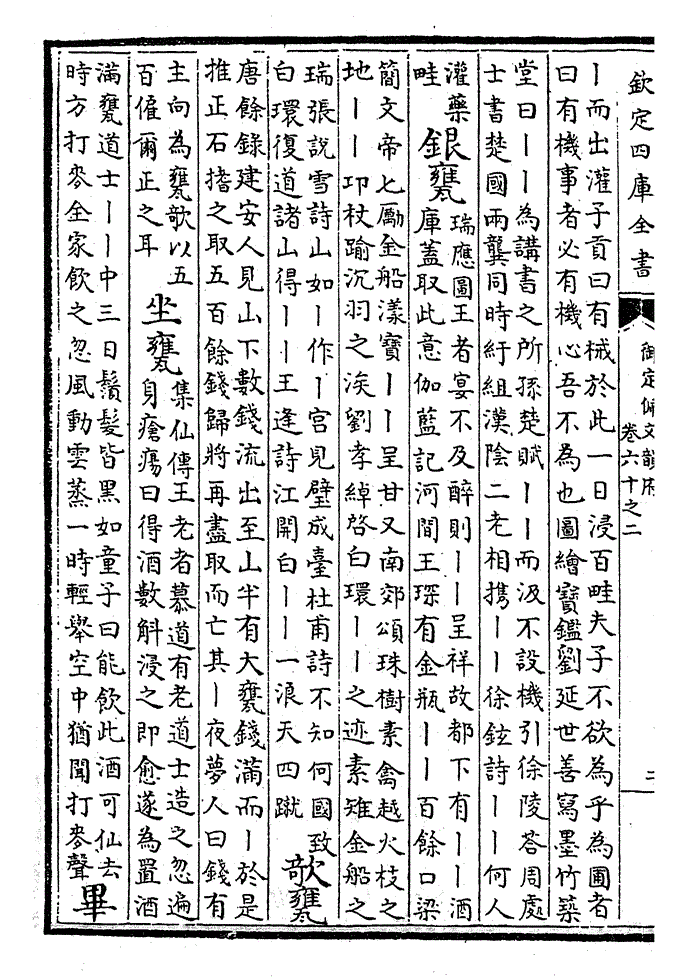 欽定四庫全書
御定佩文韻府
卷六十之二
二
丨而出灌子貢曰有械於此一日浸百畦夫子不欲為乎為圃者
曰有機事者必有機心吾不為也圖繪寶鑑劉延世善寫墨竹築
堂曰丨丨為講書之所孫楚賦丨丨而汲不設機引徐陵荅周處
士書楚國兩龔同時紆組漢陰二老相攜丨丨徐鉉詩丨丨何人
灌藥
畦
銀甕
瑞應圖王者宴不及醉則丨丨呈祥故都下有丨丨酒
庫蓋取此意伽藍記河間王琛有金瓶丨丨百餘口梁
簡文帝七勵金船漾寶丨丨呈甘又南郊頌珠樹素禽越火枝之
地丨丨卭杖踰沉羽之涘劉孝綽啓白環丨丨之迹素雉金船之
瑞張説雪詩山如丨作丨宮見璧成臺杜甫詩不知何國致
白環復道諸山得丨丨王逢詩江開白丨丨一浪天四蹴
歆甕
唐餘錄建安人見山下數錢流出至山半有大甕錢滿而丨於是
推正石搘之取五百餘錢歸將再盡取而亡其丨夜夢人曰錢有
主向為甕歌以五
百僱爾正之耳
坐甕
集仙傳王老者慕道有老道士造之忽遍
身瘡瘍曰得酒數斛浸之即愈遂為置酒
滿甕道士丨丨中三日鬚髮皆黑如童子曰能飲此酒可仙去
時方打麥全家飲之忽風動雲蒸一時輕舉空中猶聞打麥聲
畢